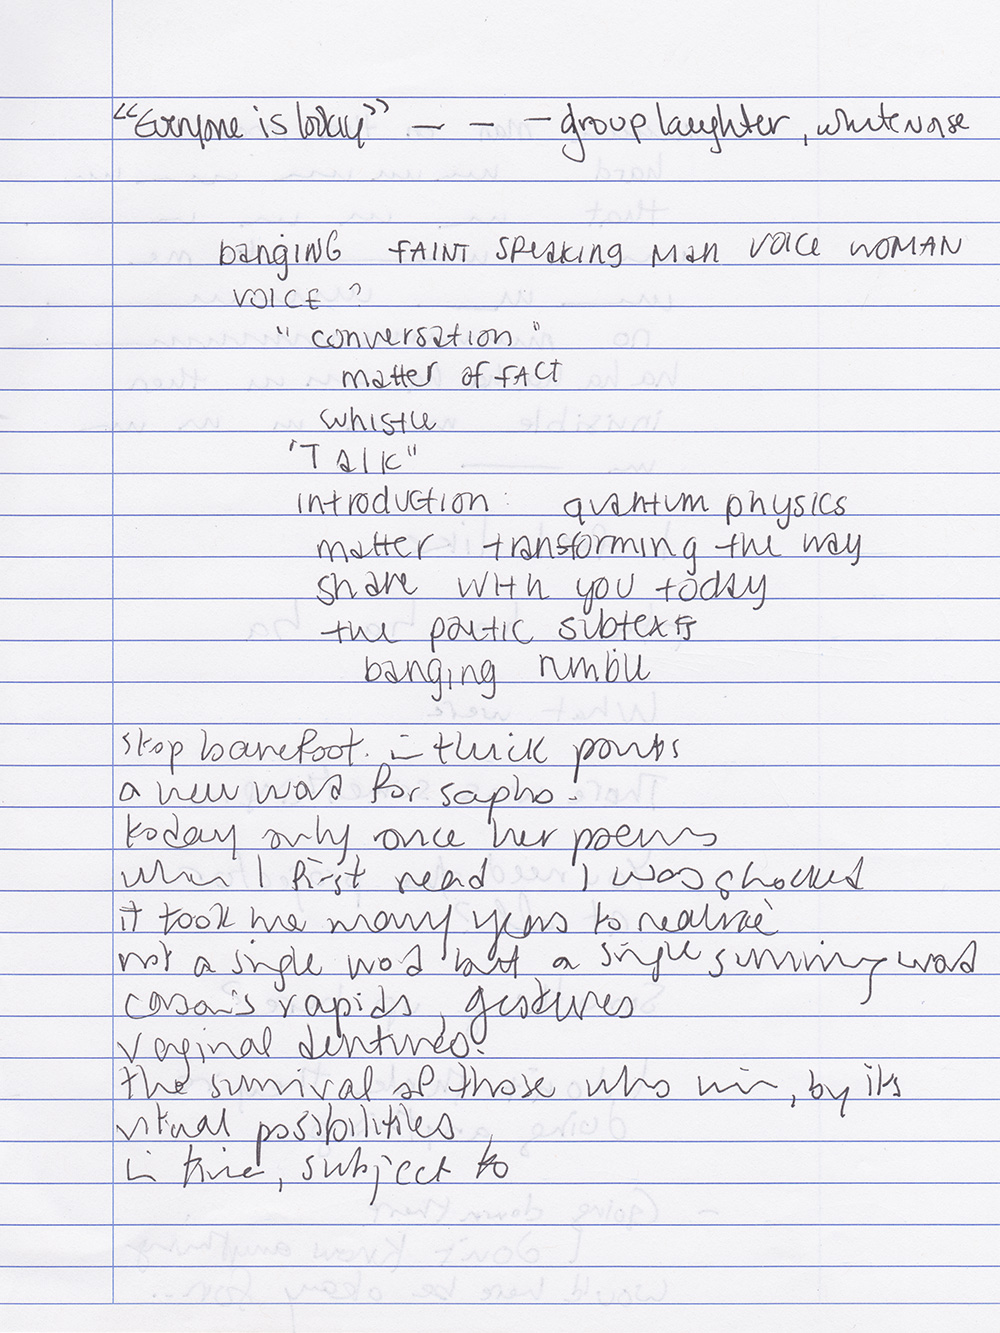 "Everyone is today" — — — group laughter, white noise
banging FAINT SPEAKING Man VOICE WOMAN
VOICE?
"conversation"
matter of fact
whistle
"Talk"
introduction: quantum physics
matter transforming the way
share with you today
the poetic subtexts
banging rumble
stop barefoot. in thick
a new word for sapho.
today only once her poems
when I first read I was shocked
it took me many years to realize
not a single word but a single word
rapids, gestures
vaginal dentures.
the survival of those who win, by its
possibilities,
in time, subject to